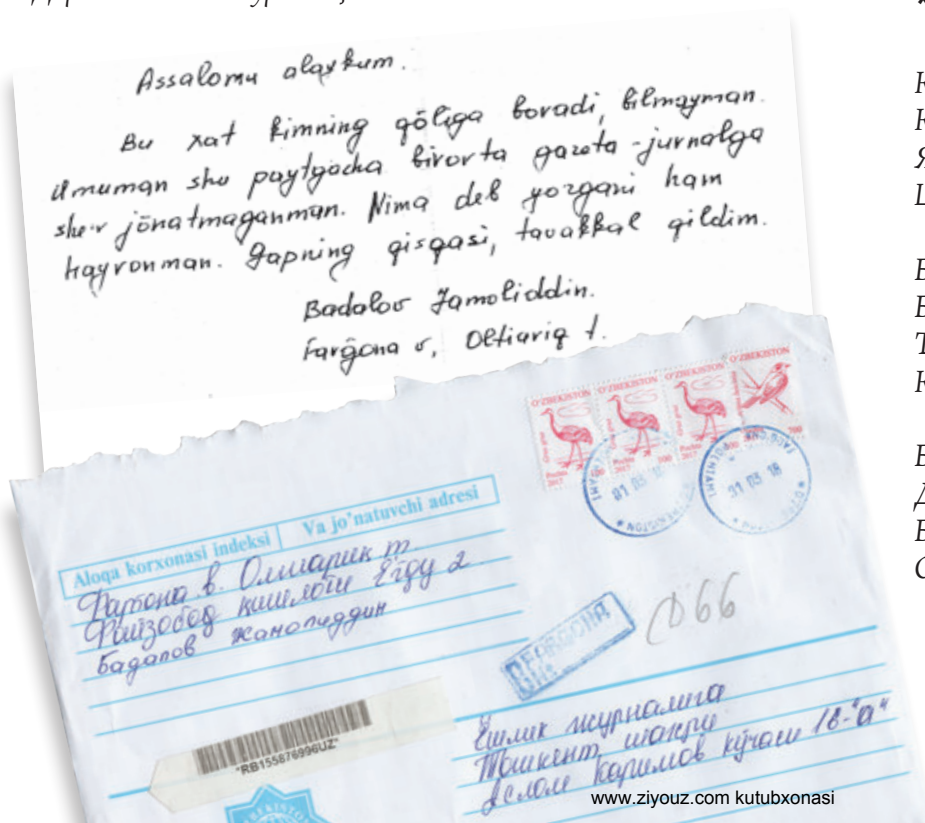 Assalomu alaykum.
Bu xat kimning qõliga boradi, bilmayman.
Umuman shu paytgacha birorta gazeta-jurnalga
she'r jõnatmaganman. Nima deb yozgani ham
hayronman. Gapning qisqasi, tavakkal qildim.
Badalov Jamoliddin.
Farg̃ona v, Oltiariq t.
O'ZBEKISTON O'ZBEKISTON O'ZBEKISTON O'ZBEKISTON
Pochta
2017
700
Aloqa korxonasi indeksi Va jo'natuvchi adresi
Фарғона в. Олтиариқ т.
Файзобод қишлоғи 2
Бадалов Жамолиддин
FARGONA
66
Ёшлик журналига
Тошкент шаҳри
Ислом Каримов кўчаси 18-"а"
*RB155876996UZ*
www.ziyouz.com kutubxonasi